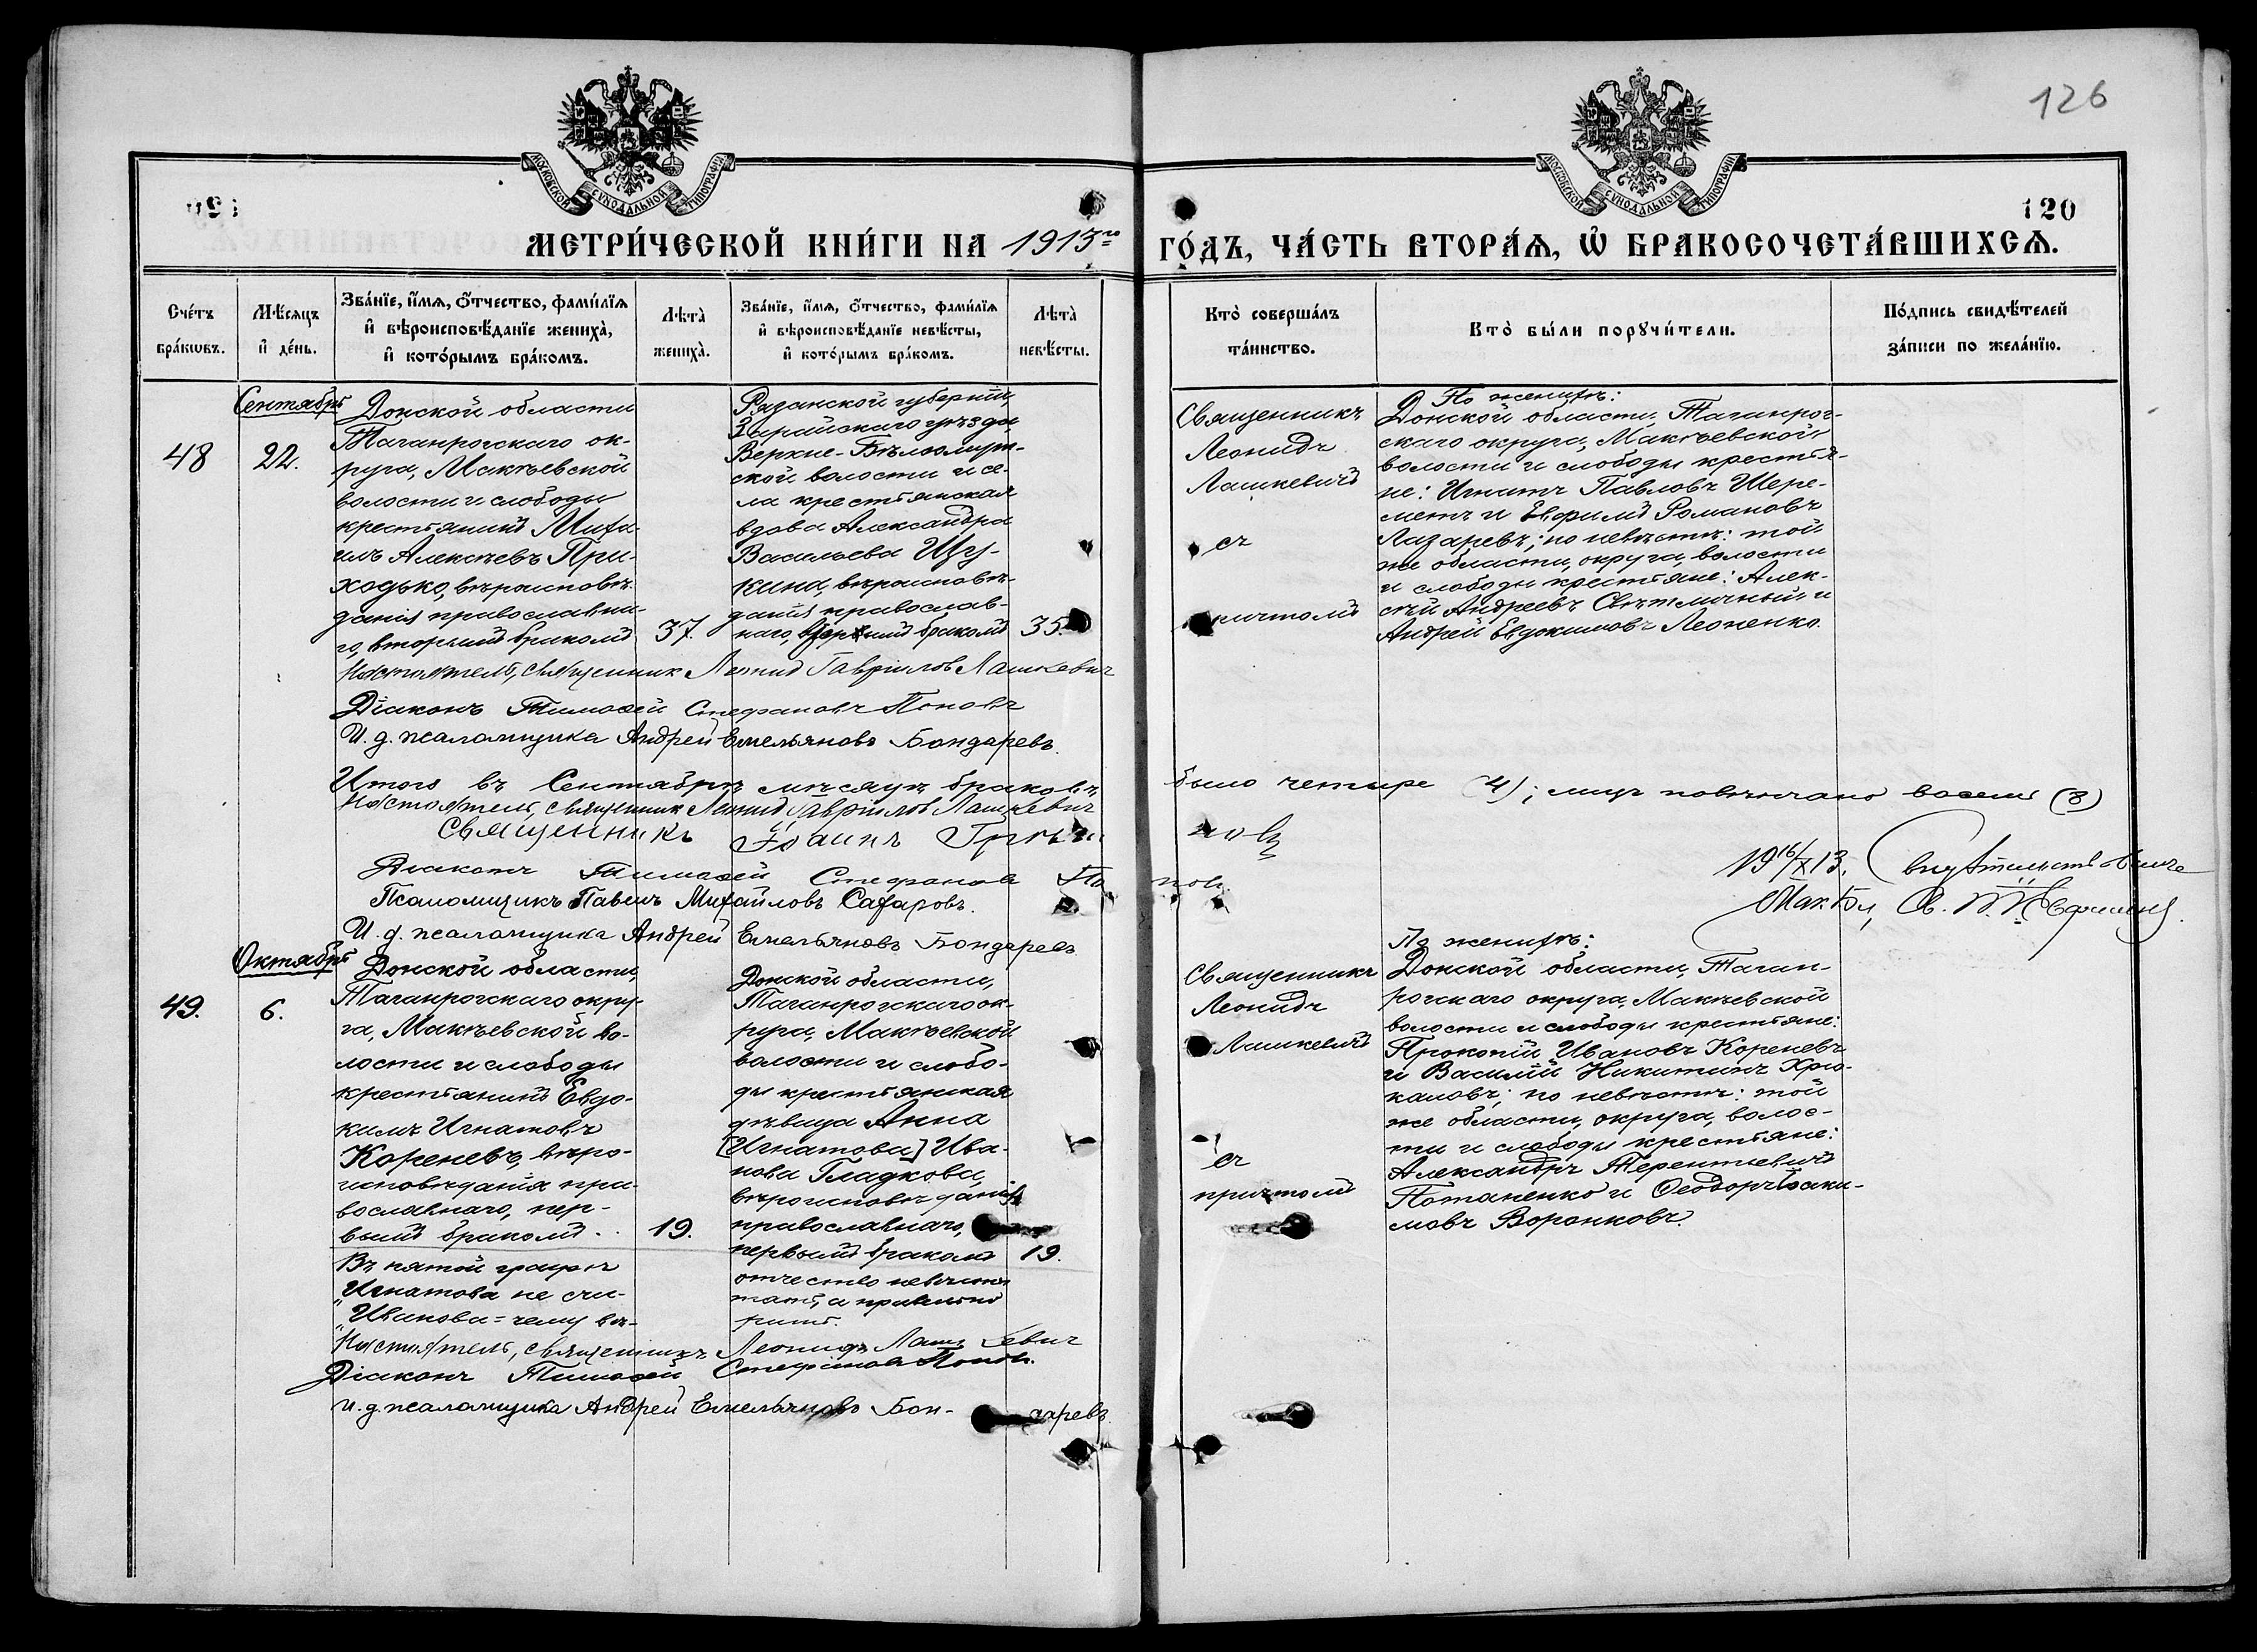 126
МОСКОВСКОЙ СУНОДАЛЬНОЙ ТИПОГРАФІИ
МОСКОВСКОЙ СУНОДАЛЬНОЙ ТИПОГРАФІИ
120
МЕТРИ́ЧЕСКОЙ КНИ́ГИ НА 1913го ГО́ДЪ, ЧА́СТЬ ВТОРА́Я, Ѽ БРАКОСОЧЕТА́ВШИХСЯ.
Сче́тъ бра́кѡвъ.
Мѣ́сяцъ и҆ де́нь.
Зва́нїе, и҆́мя, ѻ҆́тчество, фами́лїя и҆ вѣроисповѣ́данїе жениха̀, и҆ кото́рымъ бра́комъ.
Лѣта̀ жениха̀.
Зва́нїе, и҆́мя, ѻ҆́тчество, фами́лїя и҆ вѣроисповѣ́данїе невѣ́сты, и҆ кото́рымъ бра́комъ.
Лѣта̀ невѣ́сты.
Кто̀ соверша́лъ та́инство.
Кто̀ бы́ли порꙋчи́тели.
По́дпись свидѣ́телей за́писи по жела́нїю.
Сентябрь
48
22.
Донской области
Таганрогскаго ок-
руга, Макѣевской
волости и слободы
крестьянинъ Миха-
илъ Алексѣевъ При-
ходько, вѣроисповѣ-
данія православна-
го, вторымъ бракомъ
37.
Рязанской губерніи
Зарайскаго уѣзда
Верхне-Бѣлоомут-
ской волости и се-
ла крестьянская
вдова Александра
Васильева Щу-
кина, вѣроисповѣ-
данія православ-
наго, вторымъ бракомъ
35.
Священникъ
Леонидъ
Лашкевичъ
съ
причтомъ
По женихѣ:
Донской области, Таганрог-
скаго округа, Макѣевской
волости и слободы крестья-
не: Игнатъ Павловъ Шере-
метъ и Евфимъ Романовъ
Лазаревъ; по невѣстѣ: той
же области, округа, волости
и слободы крестьяне: Алек-
сѣй Андреевъ Свѣтличный и
Андрей Евдокимовъ Леоненко.
Настоятель, священник Леонид Гаврилов Лашкевич
Діаконъ Тимоѳей Стефановъ Поповъ
И. д. псаломщика Андрей Емельяновъ Бондаревъ.
Итого въ Сентябрѣ мѣсяцѣ браковъ было четыре (4); лицъ повѣнчано восемь (8)
Настоятель, священник Леонид Гаврилов Лашкевич
Священникъ Іоаннъ
Діаконъ Тимоѳей Стефановъ Поповъ
Псаломщикъ Павелъ Михайловъ Сахаровъ.
И. д. псаломщика Андрей Емельяновъ Бондаревъ
19 16/X 13.
Октябрь
49.
6.
Донской области,
Таганрогскаго окру-
га, Макѣевской во-
лости и слободы
крестьянинъ Евдо-
кимъ Игнатовъ
Кореневъ, вѣро-
исповѣданія пра-
вославнаго, пер-
вымъ бракомъ.
19.
Донской области,
Таганрогскаго ок-
руга, Макѣевской
волости и слобо-
ды крестьянская
дѣвица Анна
[Игнатова] Ива-
нова Гладкова,
вѣроисповѣданія
православнаго,
первымъ бракомъ
19.
Священникъ
Леонидъ
Лашкевичъ
съ
причтомъ
По женихѣ:
Донской области, Таган-
рогскаго округа, Макѣевской
волости и слободы крестьяне:
Прокопій Ивановъ Кореневъ
и Василій Никитинъ Хрю-
каловъ; по невѣстѣ: той
же области, округа, волос-
ти и слободы крестьяне:
Александръ Терентьевичъ
Потапенко и Ѳеодоръ Іоаки-
мовъ Воронковъ.
Въ пятой графѣ отчество невѣсты
„Игнатова не счи- тать, а правильно
„Иванова" чему вѣ- рить.
Настоятель, священникъ Леонидъ Лашкевич
Діаконъ Тимоѳей Стефановъ Поповъ.
И. д. псаломщика Андрей Емельяновъ Бон- даревъ.